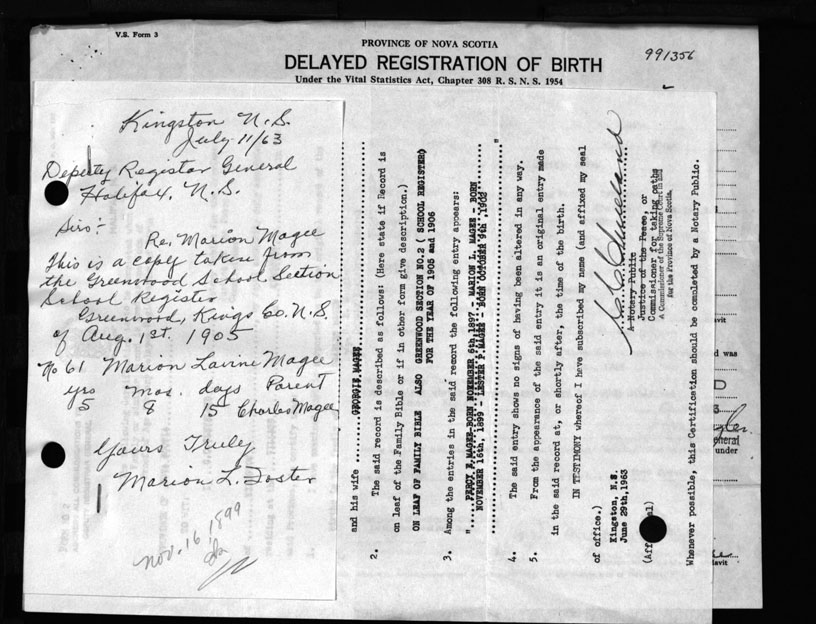 V.S. Form 3
PROVINCE OF NOVA SCOTIA
DELAYED REGISTRATION OF BIRTH
Under the Vital Statistics Act, Chapter 308 R. S. N. S. 1954
991356
Kingston N.S.
July 11/63
Deputy Registar General
Halifax, N.S.
Sirs:-
Re, Marion Magee
This is a copy taken from
the Greenwood School Section
School Register
Greenwood, Kings Co. N.S.
of Aug. 1st. 1905
No 61 Marion Lavine Magee
yrs mos. days Parent
5 8 15 Charles Magee
Yours Truly
Marion L. Foster
Nov. 16, 1899
and his wife GEORGIE MAGEE
2. The said record is described as follows: (Here state if Record is
on leaf of the Family Bible or if in other form give description.)
ON LEAF OF FAMILY BIBLE ALSO GREENWOOD SECTION NO.2 ( SCHOOL REGISTER)
FOR THE YEAR OF 1905 and 1906
3. Among the entries in the said record the following entry appears:
" PERCY E. MAGEE-BORN NOVEMBER 6th, 1897 - MARION L. MAGEE - BORN
NOVEMBER 16th, 1899 - LESTER P. MAGEE - BORN OCTOBER 9th, 1902
"
4. The said entry shows no signs of having been altered in any way.
5. From the appearance of the said entry it is an original entry made
in the said record at, or shortly after, the time of the birth.
IN TESTIMONY whereof I have subscribed my name (and affixed my seal
of office.)
Kingston, N.S.
June 29th, 1963
A Notary Public
Justice of the Peace, or
Commissioner for taking oaths
A Commissioner of the Supreme Court in and
for the Province of Nova Scotia.
Whenever possible, this Certification should be completed by a Notary Public.
avit
d was
D
eneral
under
davit